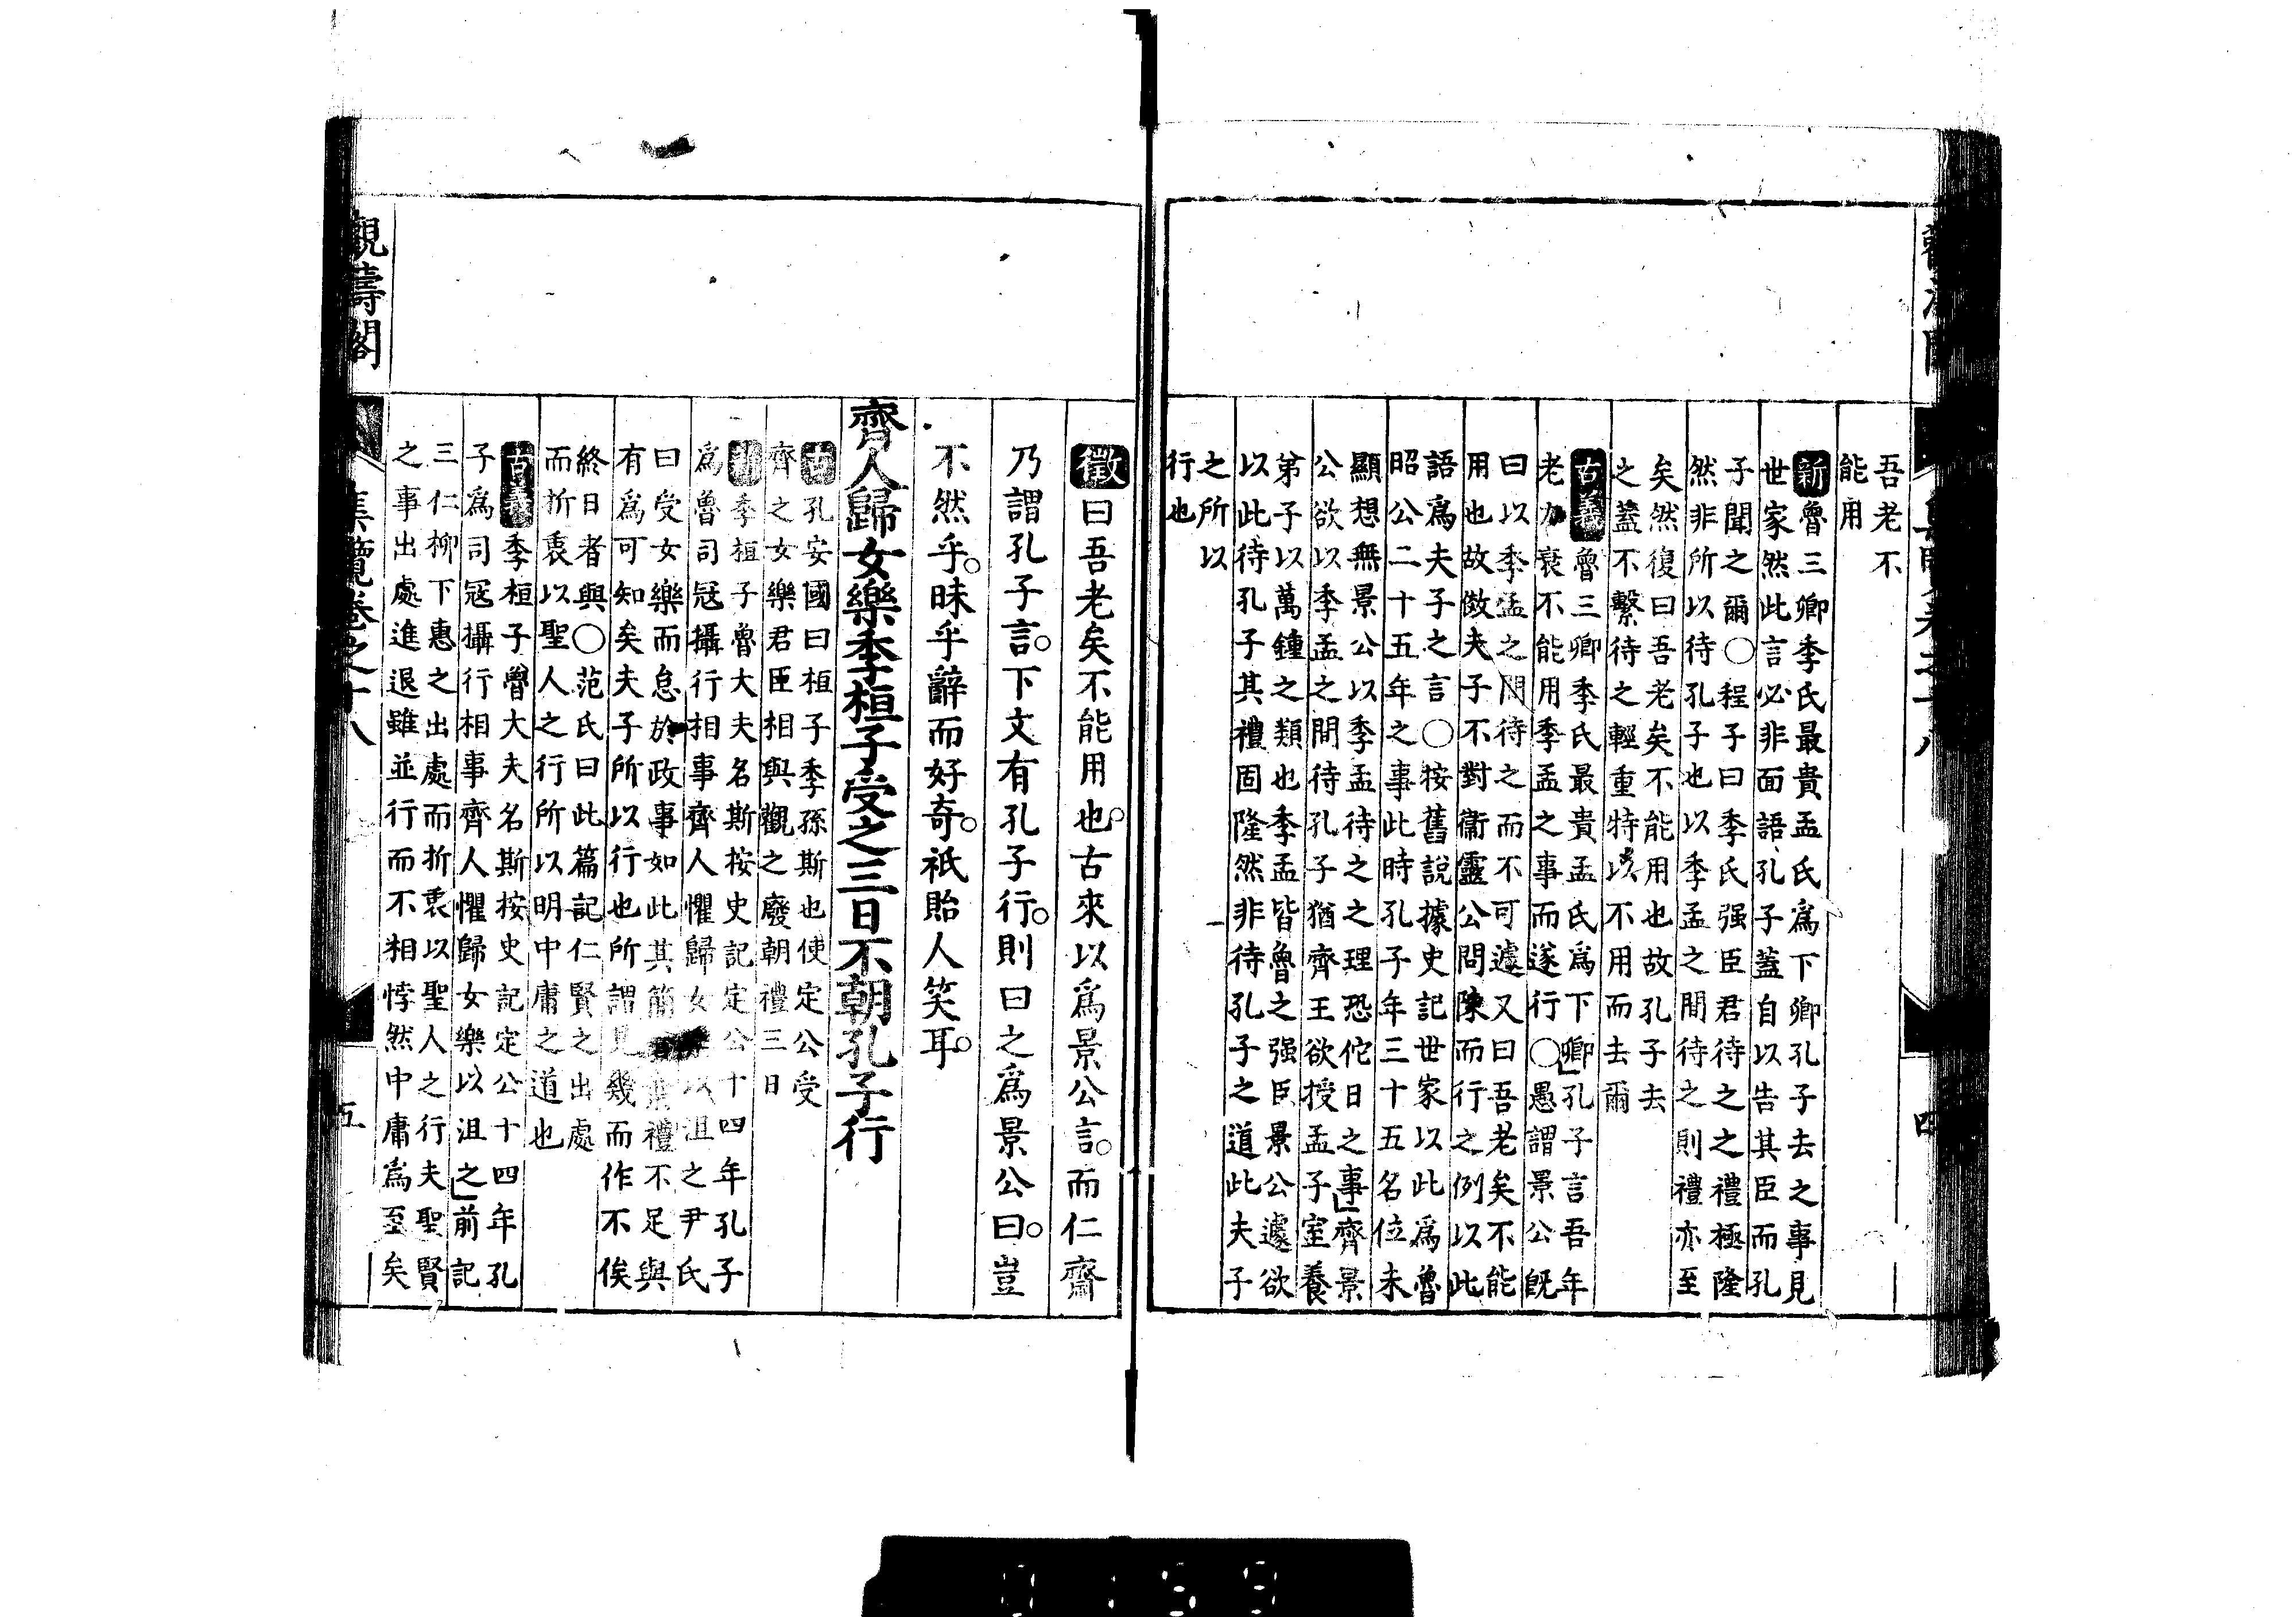 吾老不
能用
新魯三卿季氏最貴孟氏爲下卿孔子去之事見
世家然此言必非面語孔子蓋自以告其臣而孔
子聞之爾○程子曰季氏强臣君待之之禮極隆
然非所以待孔子也以季孟之間待之則禮亦至
矣然復曰吾老矣不能用也故孔子去
之蓋不繫待之輕重特以不用而去爾
古義魯三卿季氏最貴孟氏爲下卿孔子言吾年
老力衰不能用季孟之事而遂行○愚謂景公既
曰以季孟之間待之而不可遽又曰吾老矣不能
用也故倣夫子不對衞靈公問陳而行之例以此
語爲夫子之言○按舊說據史記世家以此爲魯
昭公二十五年之事此時孔子年三十五名位未
顯想無景公以季孟待之之理恐佗日之事齊景
公欲以季孟之間待孔子猶齊王欲授孟子室養
弟子以萬鍾之類也季孟皆魯之强臣景公遽欲
以此待孔子其禮固隆然非待孔子之道此夫子
之所以
行也
四
徵曰吾老矣不能用也古來以爲景公言而仁齋
乃謂孔子言下文有孔子行則曰之爲景公曰豈
不然乎昧乎辭而好奇祇貽人笑耳
齊人歸女樂季桓子受之三日不朝孔子行
古孔安國曰桓子季孫斯也使定公受
齊之女樂君臣相與觀之廢朝禮三日
新季桓子魯大夫名斯按史記定公十四年孔子
爲魯司冦攝行相事齊人懼歸女樂以沮之尹氏
曰受女樂而怠於政事如此其簡賢棄禮不足與
有爲可知矣夫子所以行也所謂見幾而作不俟
終日者與○范氏曰此篇記仁賢之出處
而折衷以聖人之行所以明中庸之道也
古義季桓子魯大夫名斯按史記定公十四年孔
子爲司冦攝行相事齊人懼歸女樂以沮之前記
三仁柳下惠之出處而折衷以聖人之行夫聖賢
之事出處進退雖並行而不相悖然中庸爲至矣
觀濤閣
集覽卷之十八
五